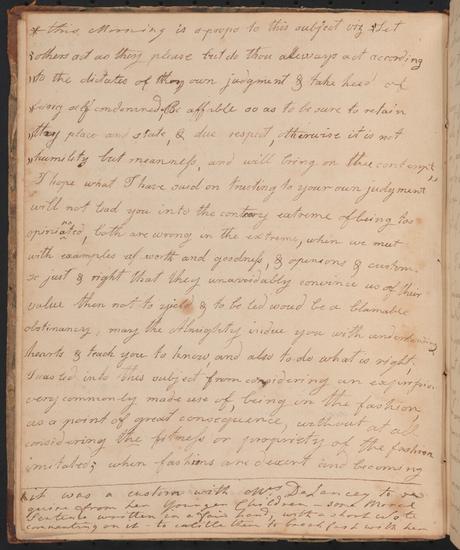 * this Morning is apropo to this subject viz "Let
"others act as they please but do thou allways act according
"to the dictates of thy own judgment & take heed of
"being self condemned, Be affible so as to be sure to retain
"thy place and state, & due respect, otherwise it is not
"humility but meanness, and will bring on thee contempt"
I hope what I have said on trusting to your own judgment
will not lead you into the contrary extreme of being too
opiniated, both are wrong in the extreme, when we meet
with examples of worth and goodness, & opinions & customs
so just & right that they unavoidably convince us of their
value then not to yield & to be led woud be a blamable
obstinancy, may the Almighty indue you with understanding
hearts & teach you to know and also to do what is right,
I was led into this subject from considering an expression
very commonly made use of, being in the fashion,
as a point of great consequence, without at all
considering the fitness or propriety of the fashion
imitated; when fashions are decent and becoming
* it was a custom with Mrs Delancey to re
quire from her Younger Children some Moral
Sentence written in a fair hand, with a short
commenting on it to intitle them to breakfast with her